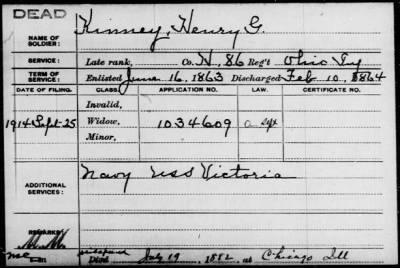 DEAD
NAME OF SOLDIER: Kinney, Henry G.
SERVICE: Late rank, Co. H, 86 Reg't Ohio Inf
TERM OF SERVICE: Enlisted June 16, 1863 Discharged Feb 10, 1864
DATE OF FILING. CLASS. APPLICATION NO. LAW. CERTIFICATE NO.
Invalid,
1914 Sept 25 Widow, 1034609
Minor,
ADDITIONAL SERVICES: Navy USS Victoria
REMARKS:
Died July 19, 1882, at Chicago Ill